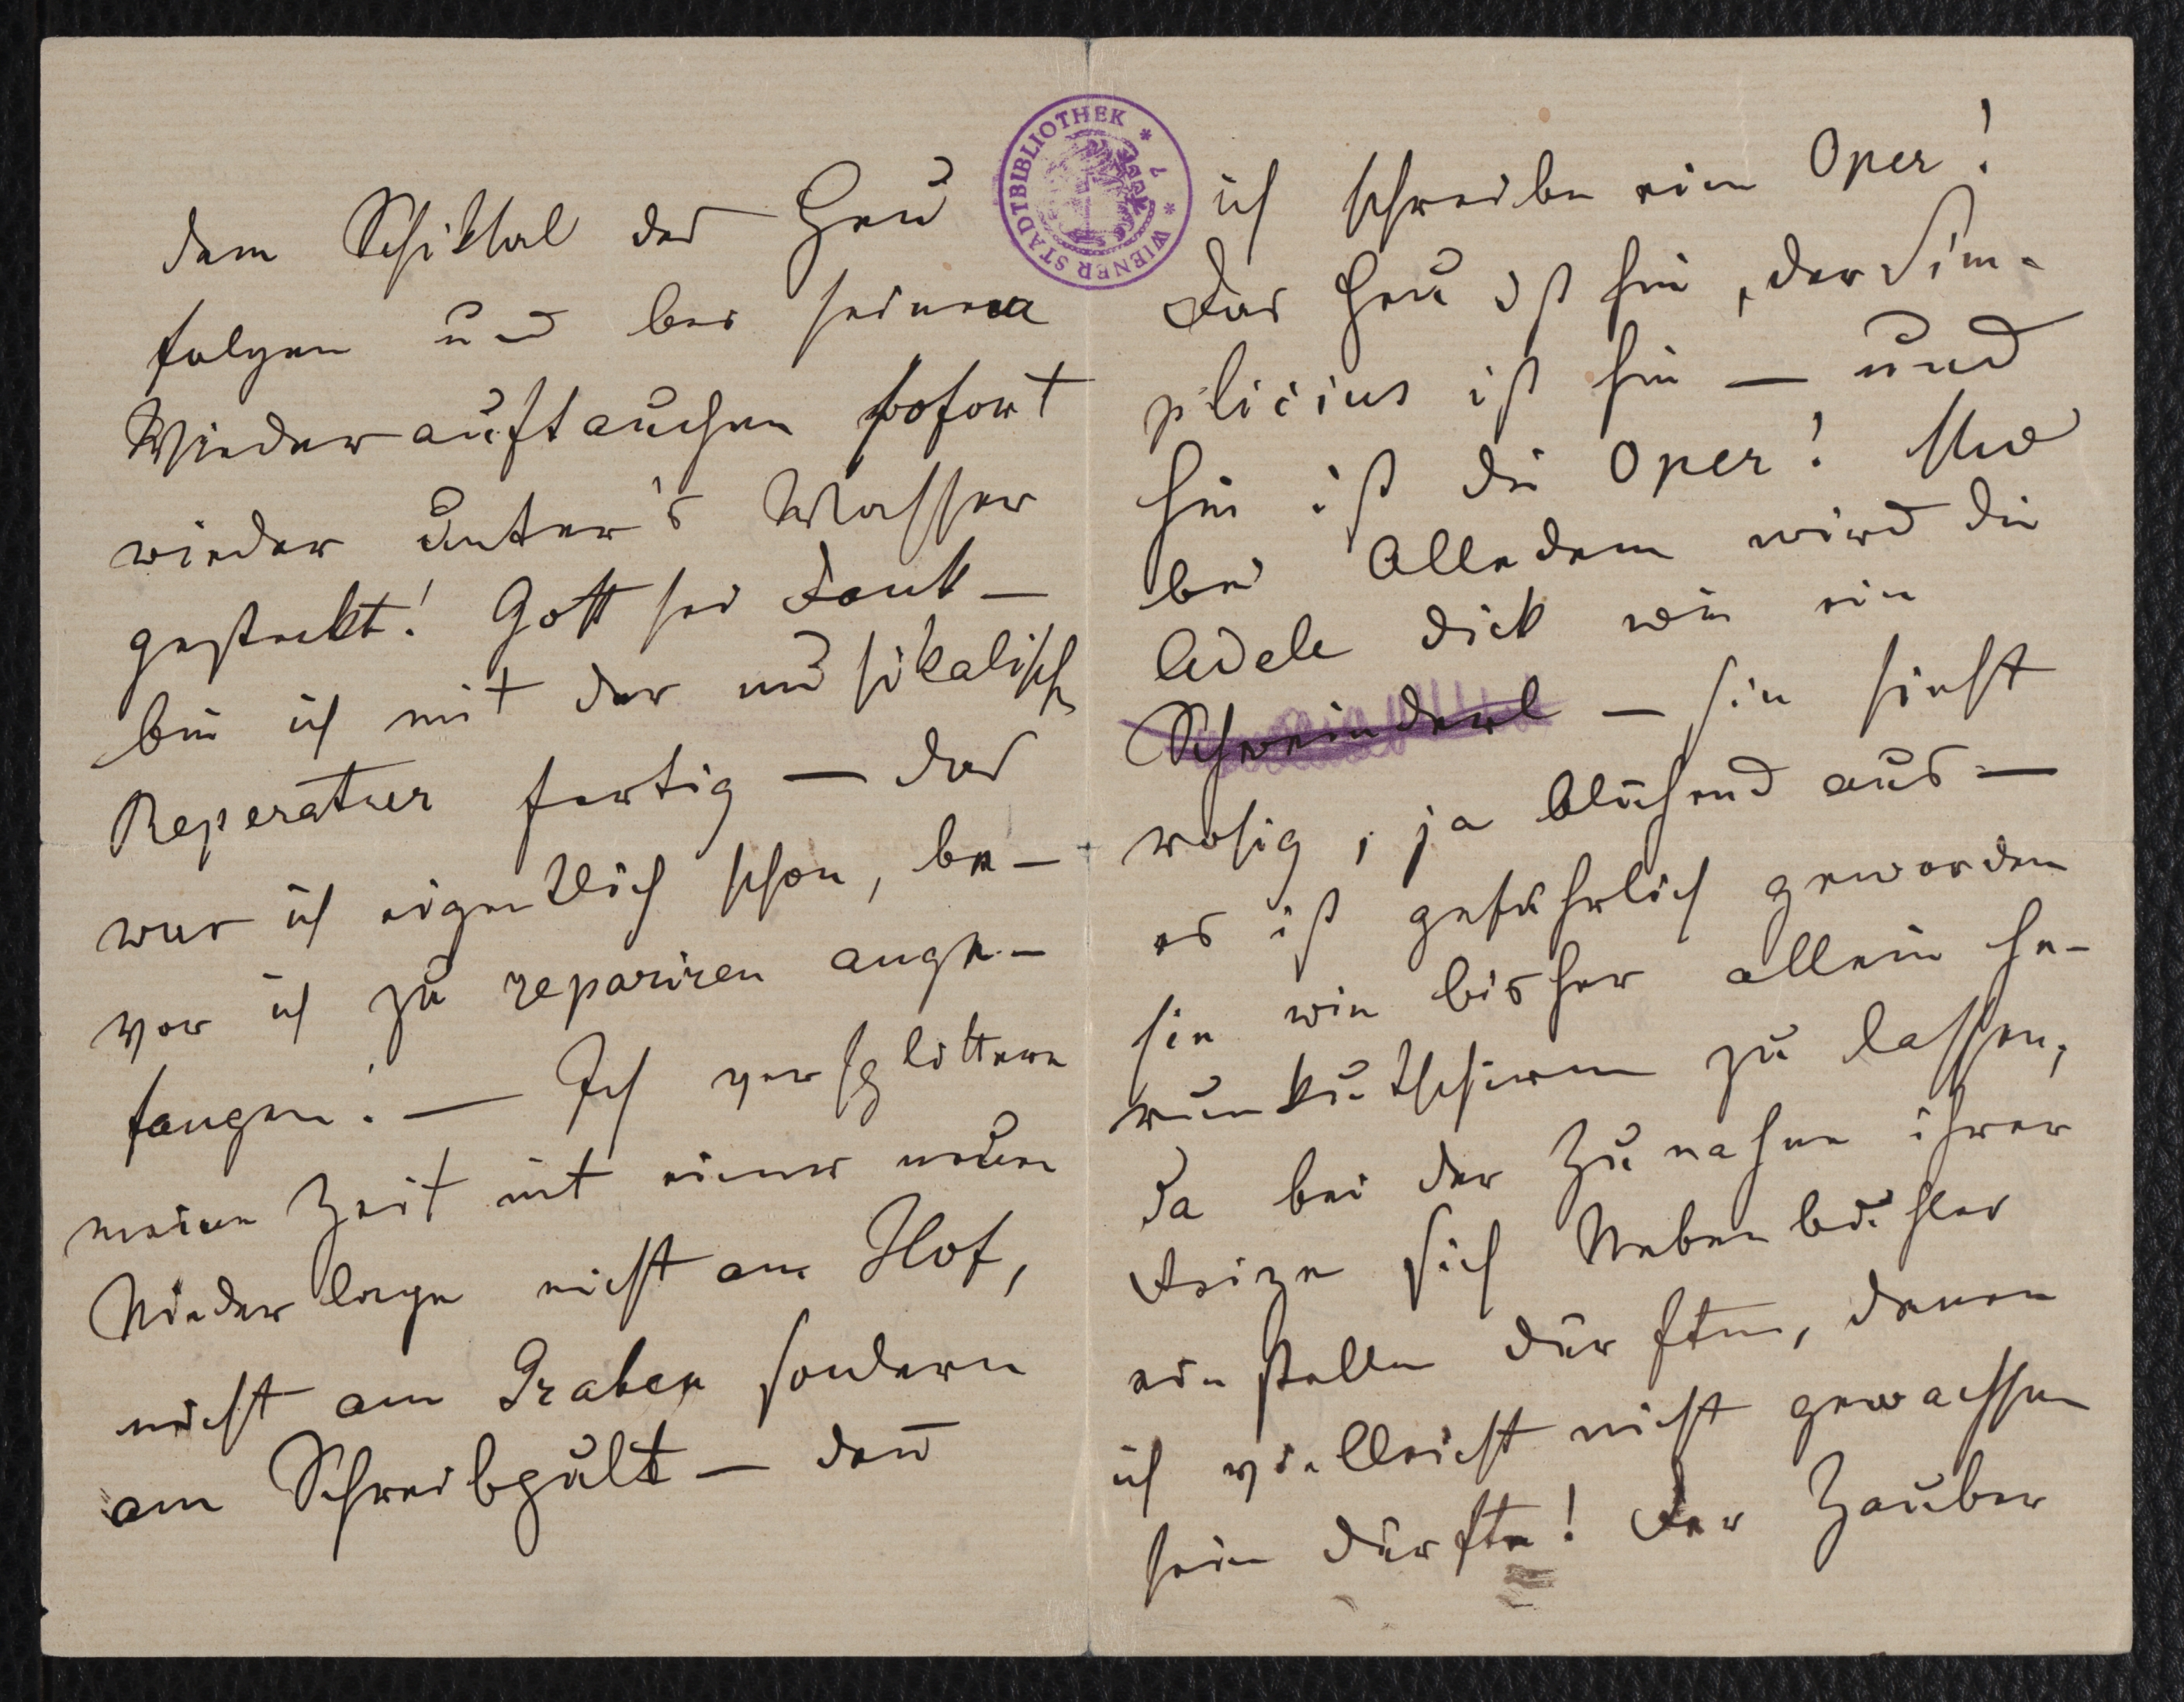 dem Schiksal des Heu
folgen und bei seinem
Wiederauftauchen sofort
wieder unter's Wasser
gestekt! Gott sei Dank —
bin ich mit der musikalisch
Reperatur fertig — das
war ich eigentlich schon, be-
vor ich zu repariren ange-
fangen! — Ich versplittere
meine Zeit mit einer neuen
Niederlage nicht am Hof,
nicht am Graben sondern
am Schreibpult — den̄
ich schreibe eine Oper!
Das Heu ist hin, der Sim-
plicius ist hin — und
hin ist die Oper! Und
bei Alledem wird die
Adele dick wie ein
Schweinderl — sie sieht
rosig, ja blühend aus —
es ist gefährlich geworden
sie wie bisher allein he-
rumkutschiren zu lassen,
da bei der Zunahme ihrer
Reize sich Nebenbuhler
einstellen dürften, denen
ich vielleicht nicht gewachsen
sein dürfte! Der Zauber
WIENER STADTBIBLIOTHEK